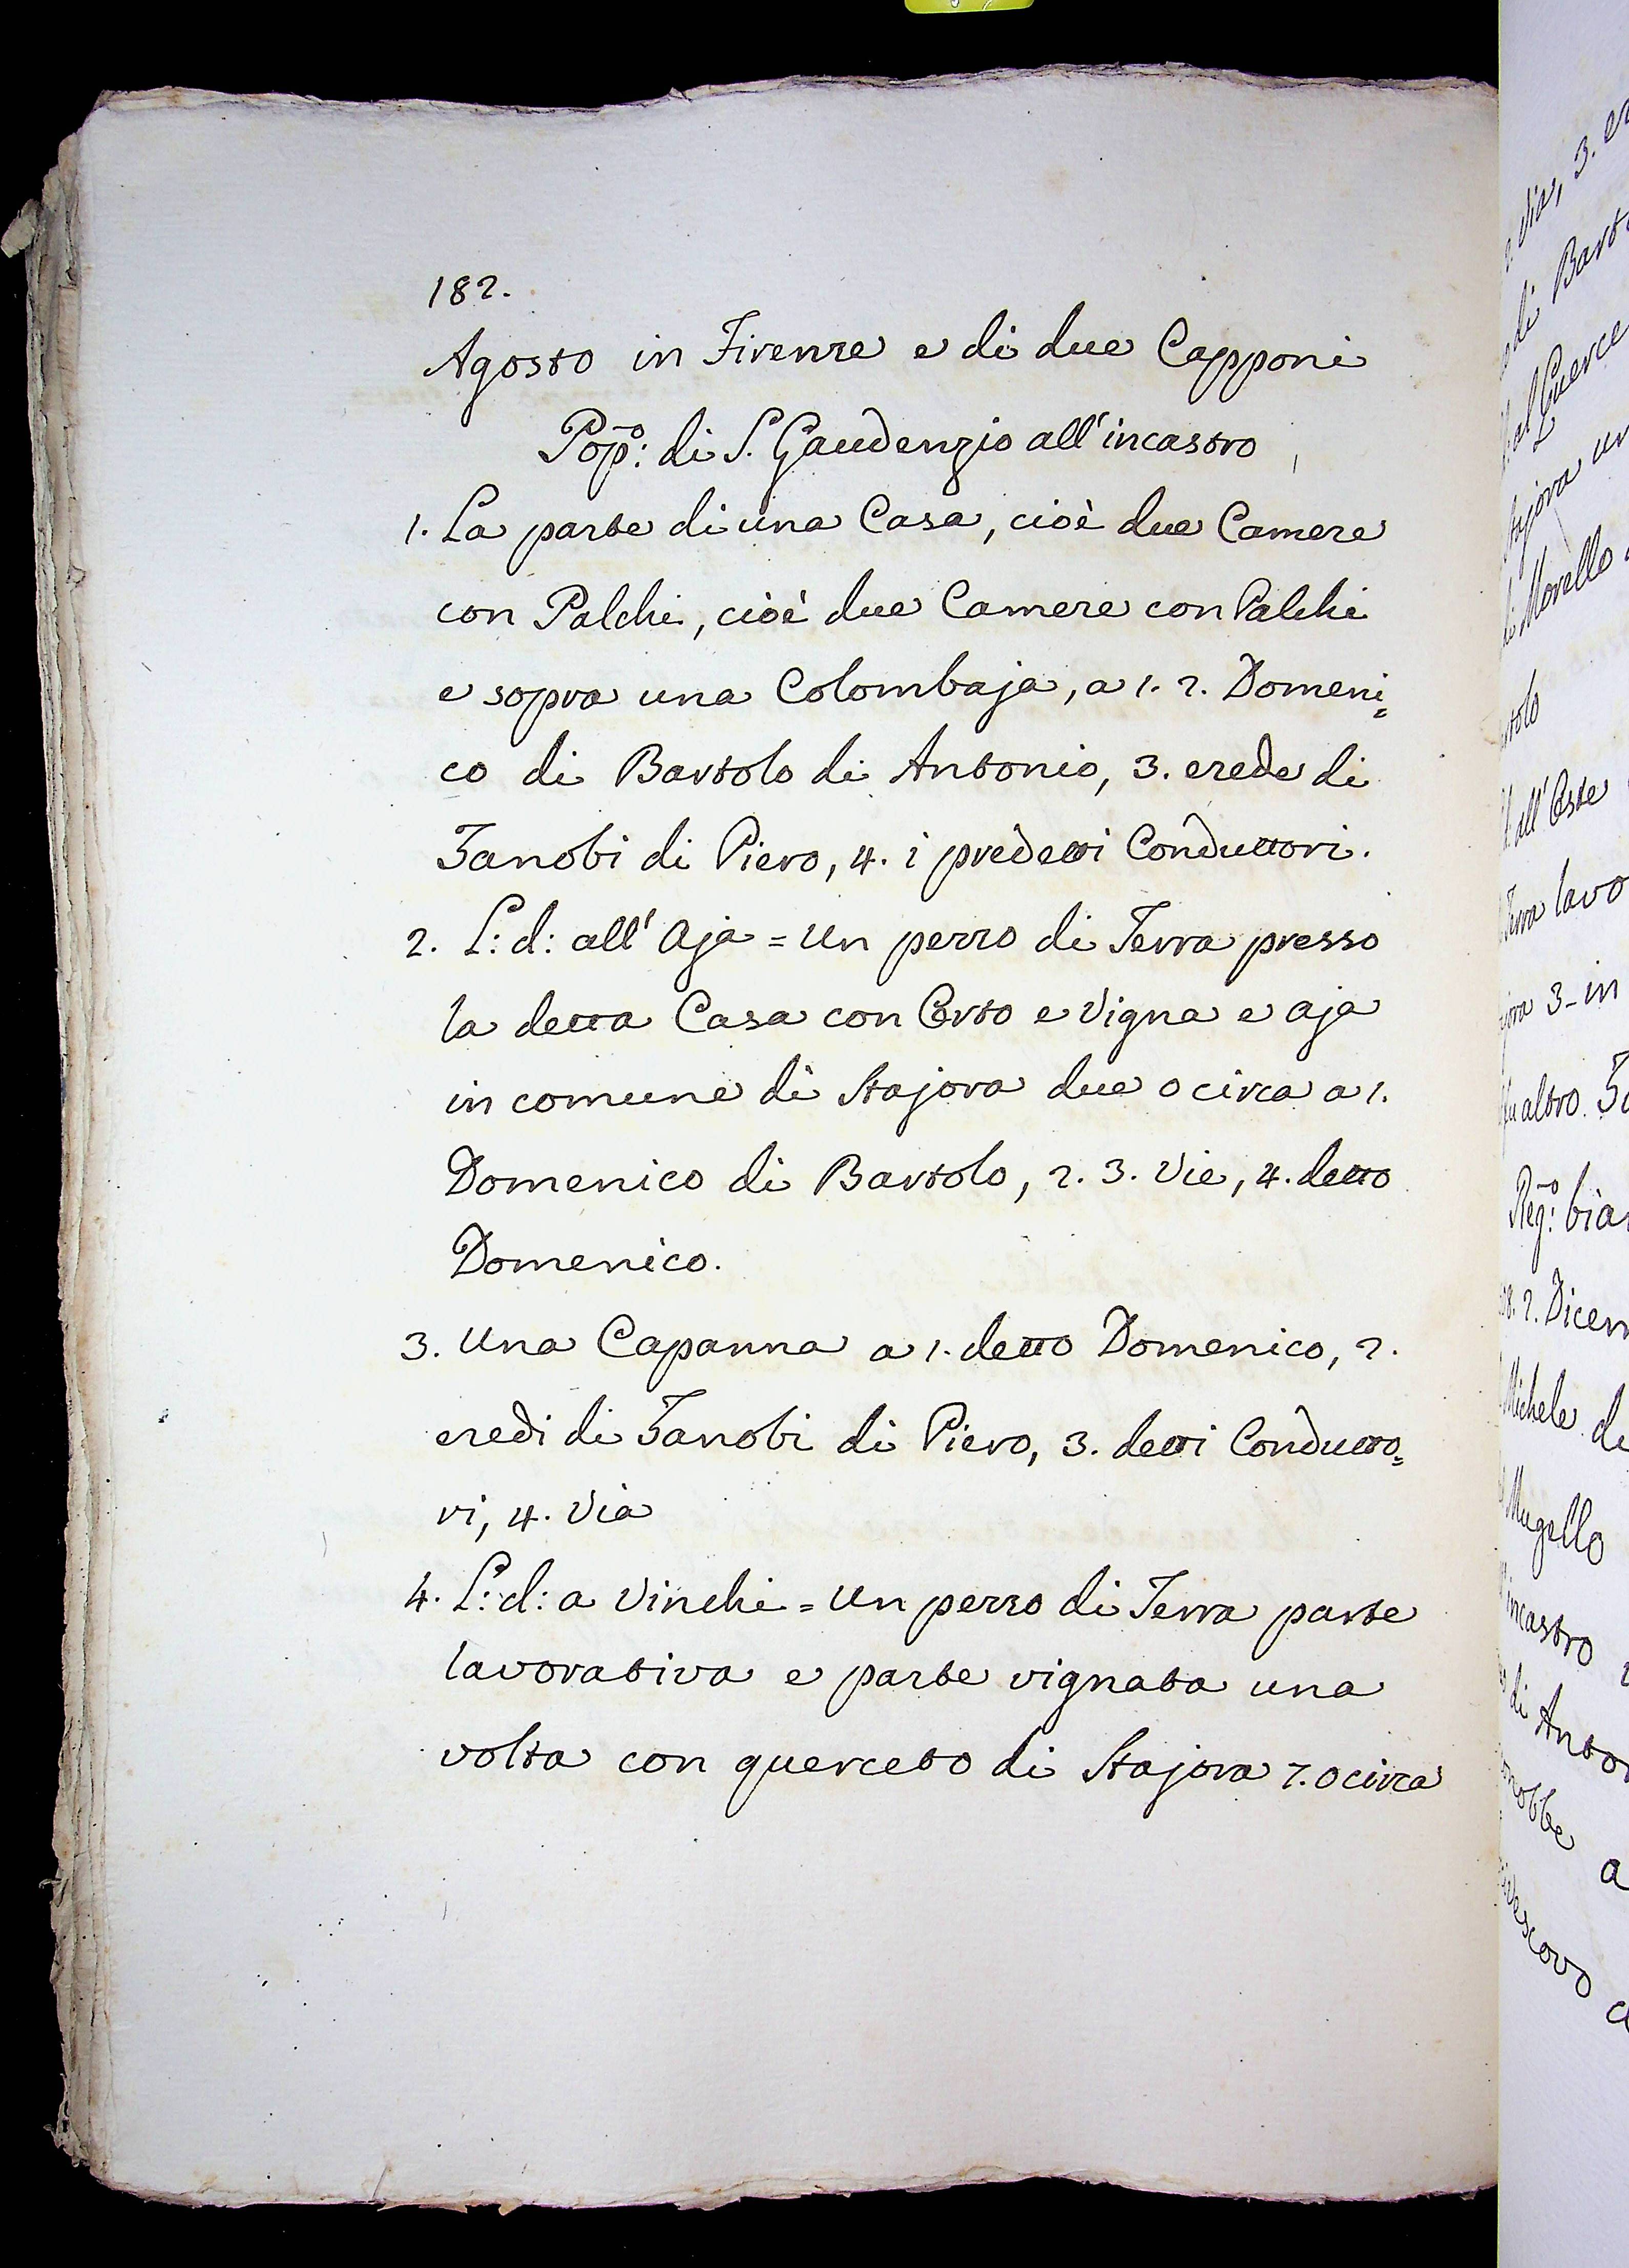 182.
Agosto in Firenze e di due Capponi
Pop:o di S. Gaudenzio all'incastro
1. La parte di una Casa, cioè due Camere
con Palchi, cioè due Camere con Palchi
e sopra una Colombaja, a 1. 2. Domeni=
co di Bartolo di Antonio, 3. erede di
Zanobi di Piero, 4. i predetti Conduttori.
2. L: d: all'Aja = Un pezzo di Terra presso
la detta Casa con Orto e Vigna e aja
in comune di Stajora due o circa a 1.
Domenico di Bartolo, 2. 3. Vie, 4. detto
Domenico.
3. Una Capanna a 1. detto Domenico, 2.
eredi di Zanobi di Piero, 3. detti Condutto=
ri, 4. Via
4. L: d: a Vinchi = Un pezzo di Terra parte
lavorativa e parte vignata una
volta con querceto di Stajora 7. o circa
Via, 3.
di
al Querce
Morello
all'Oste
Terra lavo
3 - in
altro
Reg:o
2. Dicem
Michele de
Mugello
incastro
di Anton